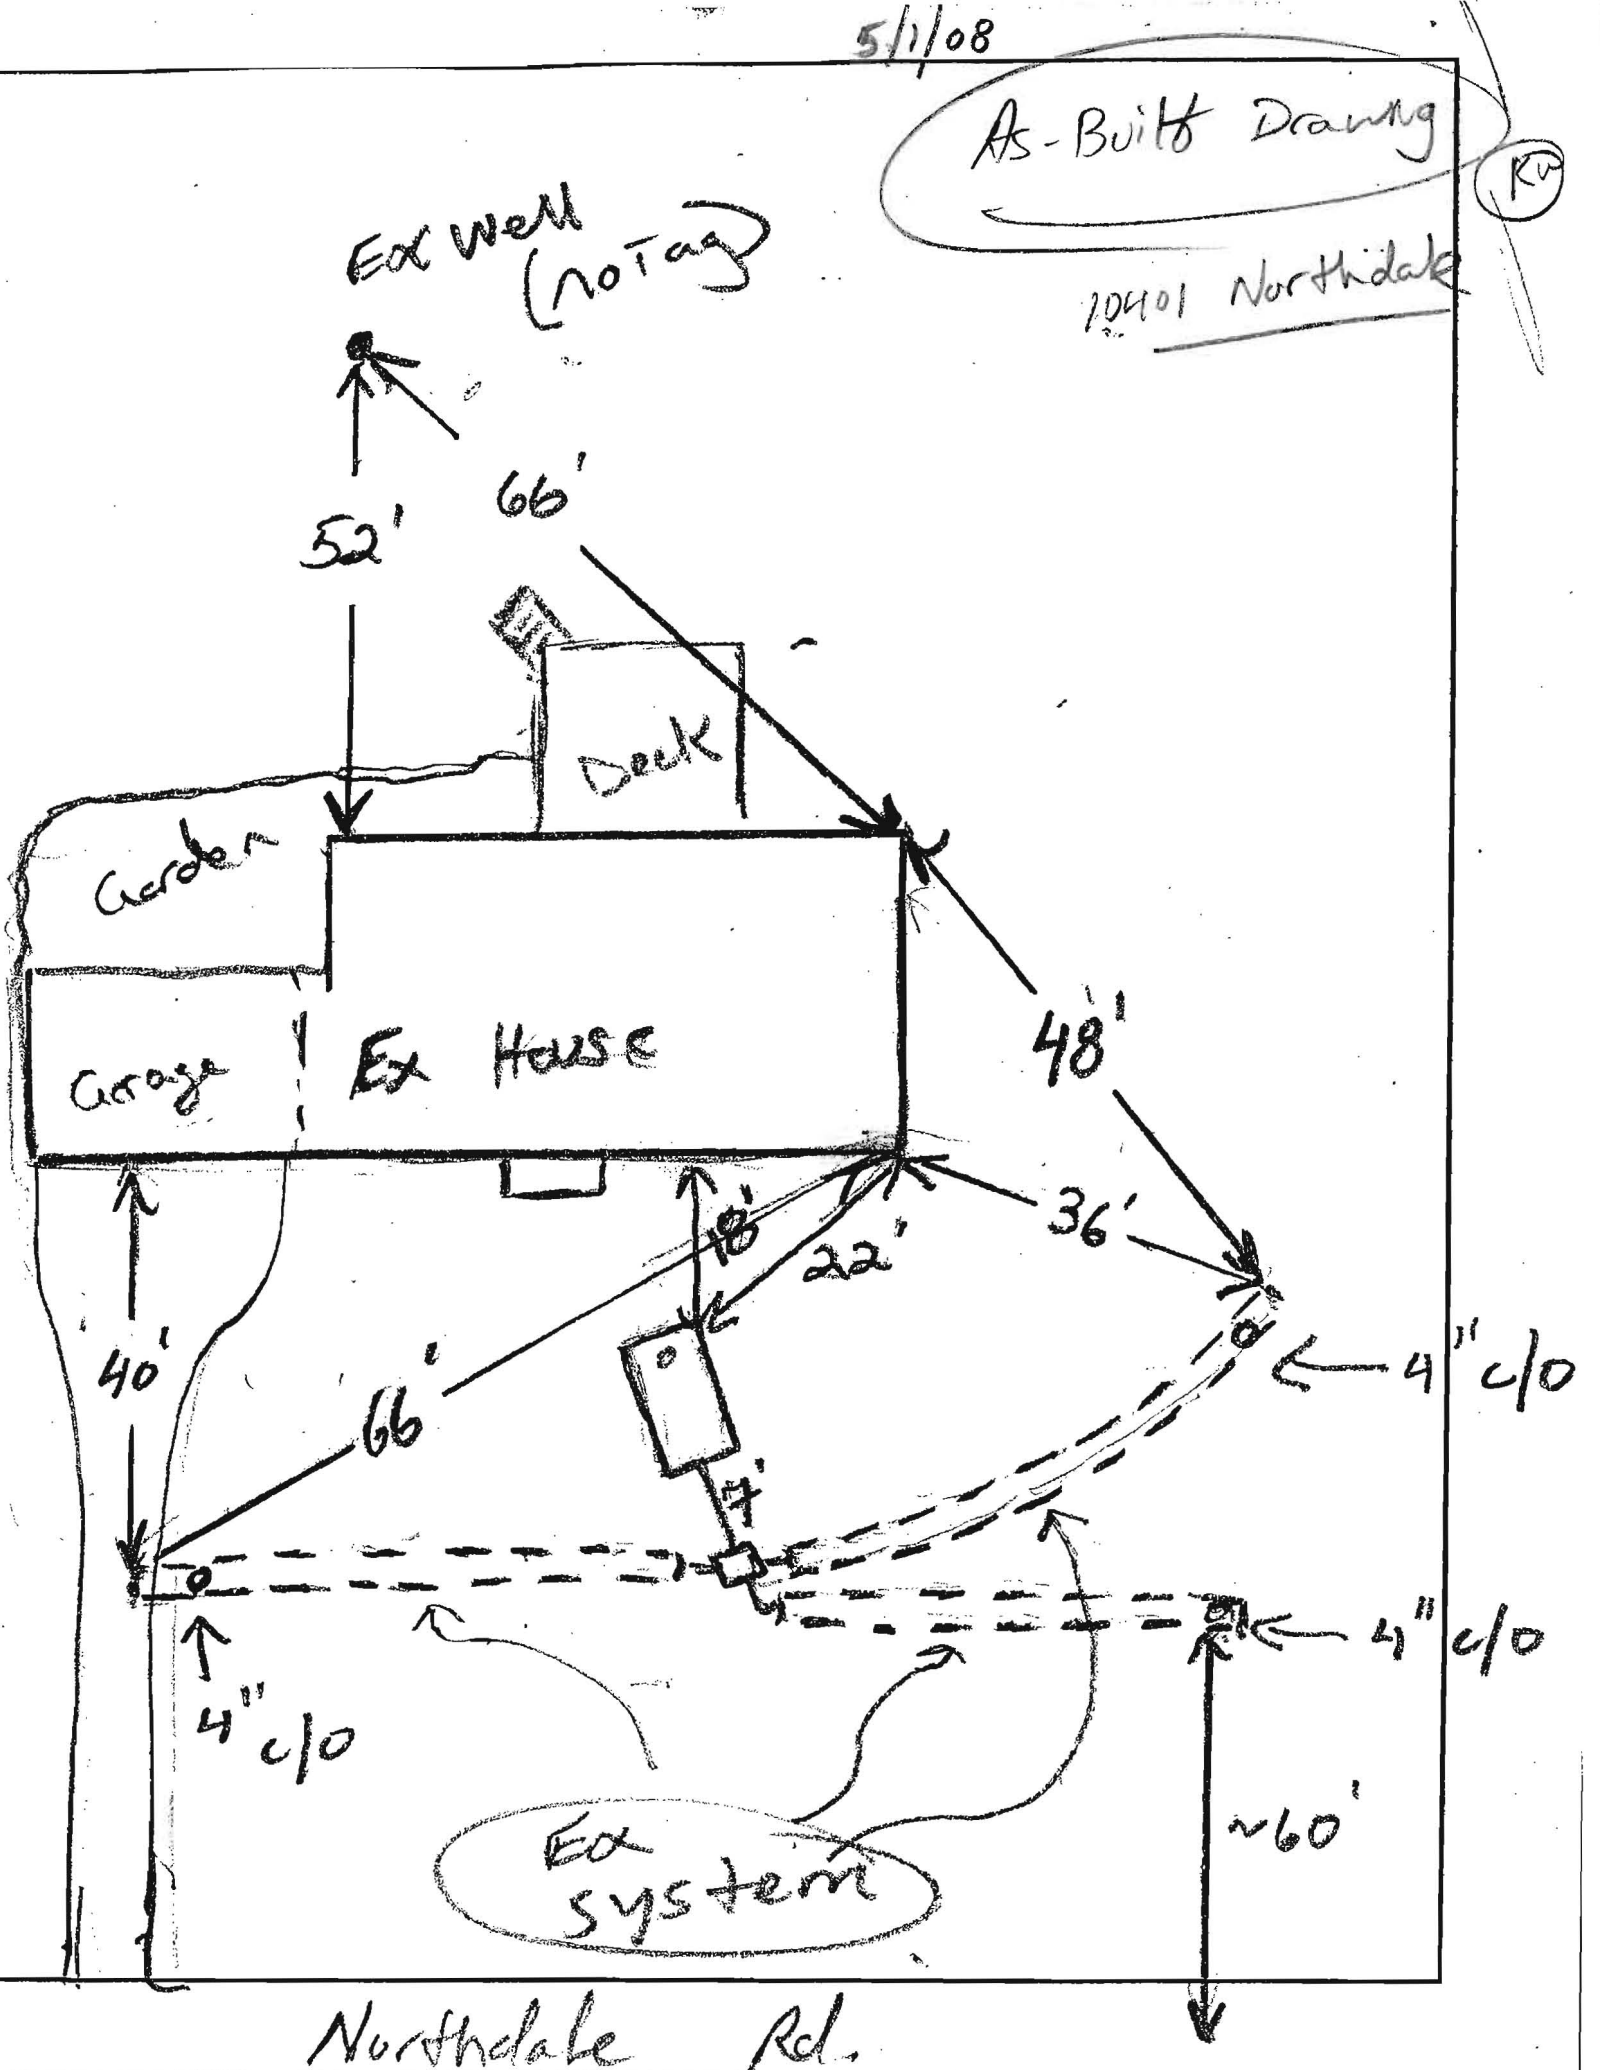 5/1/08
As-Built Drawing
KW
10401 Northdale
Ex Well
(no Tag)
52'
66'
Deck
Garden
Garage
Ex House
48'
36'
18'
22'
40'
66'
7'
4" c/o
4" c/o
4" c/o
Ex
system
~60'
Northdale Rd.